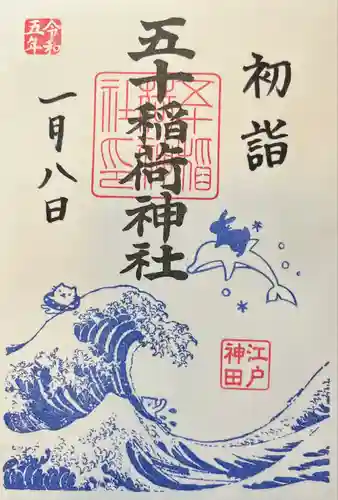 初詣
五十稲荷神社
令和
五年
一月八日
五十稲
荷神
社印
江戸
神田